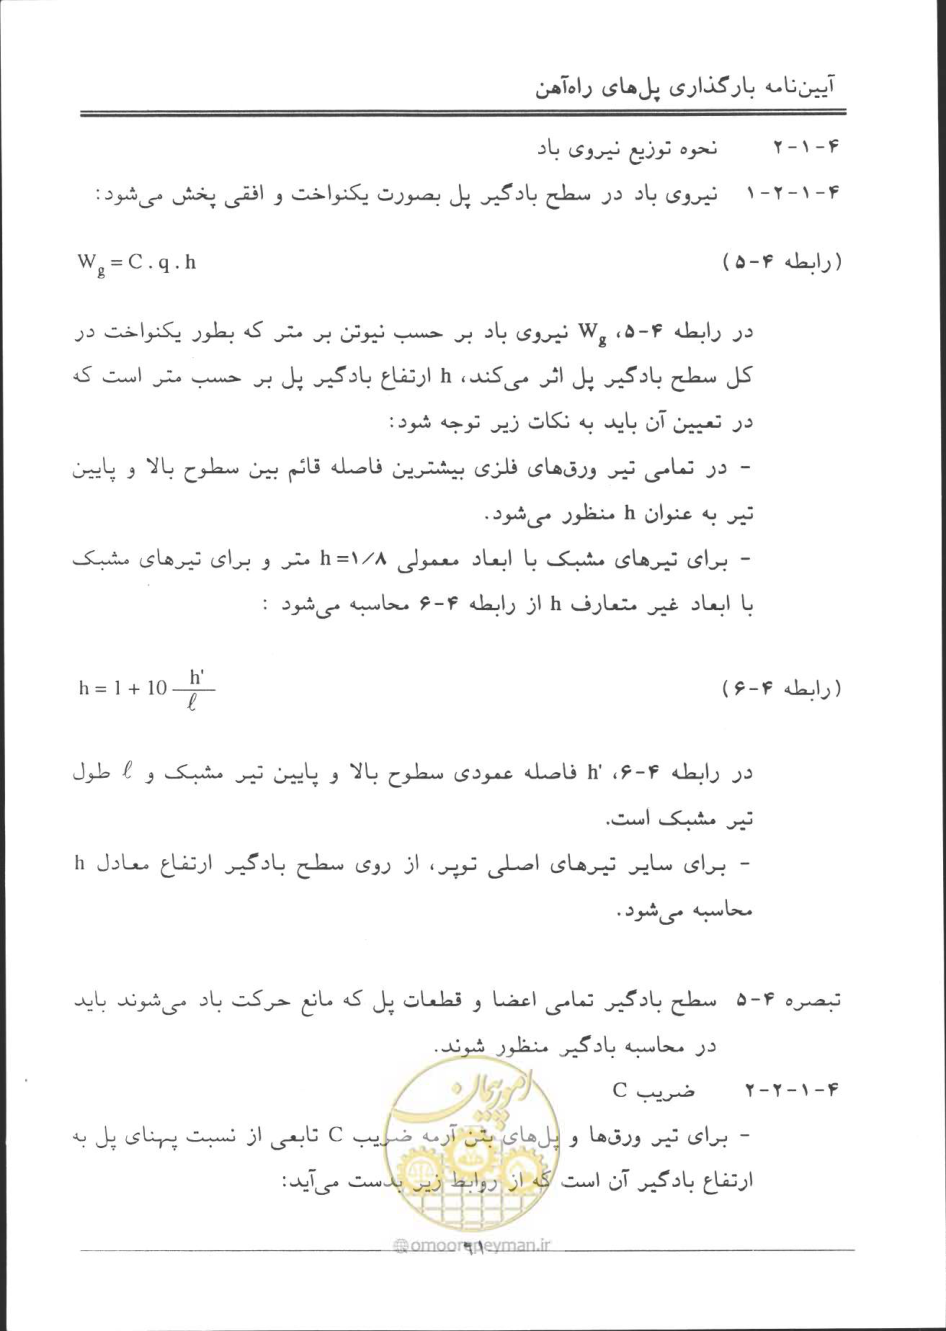 آیین‌نامه بارگذاری پل‌های راه‌آهن
۴-۱-۲ نحوه توزیع نیروی باد
۴-۱-۲-۱ نیروی باد در سطح بادگیر پل بصورت یکنواخت و افقی پخش می‌شود:
(رابطه ۴-۵) W_g = C . q . h
در رابطه ۴-۵، W_g نیروی باد بر حسب نیوتن بر متر که بطور یکنواخت در
کل سطح بادگیر پل اثر می‌کند، h ارتفاع بادگیر پل بر حسب متر است که
در تعیین آن باید به نکات زیر توجه شود:
- در تمامی تیر ورق‌های فلزی بیشترین فاصله قائم بین سطوح بالا و پایین
تیر به عنوان h منظور می‌شود.
- برای تیرهای مشبک با ابعاد معمولی h=۱/۸ متر و برای تیرهای مشبک
با ابعاد غیر متعارف h از رابطه ۴-۶ محاسبه می‌شود :
(رابطه ۴-۶) h = 1 + 10 h'/ℓ
در رابطه ۴-۶، h' فاصله عمودی سطوح بالا و پایین تیر مشبک و ℓ طول
تیر مشبک است.
- برای سایر تیرهای اصلی توپر، از روی سطح بادگیر ارتفاع معادل h
محاسبه می‌شود.
تبصره ۴-۵ سطح بادگیر تمامی اعضا و قطعات پل که مانع حرکت باد می‌شوند باید
در محاسبه بادگیر منظور شوند.
۴-۱-۲-۲ ضریب C
- برای تیر ورق‌ها و پل‌های بتن آرمه ضریب C تابعی از نسبت پهنای پل به
ارتفاع بادگیر آن است که از روابط زیر بدست می‌آید:
امور پیمان
@omoorepeyman.ir
۶۱